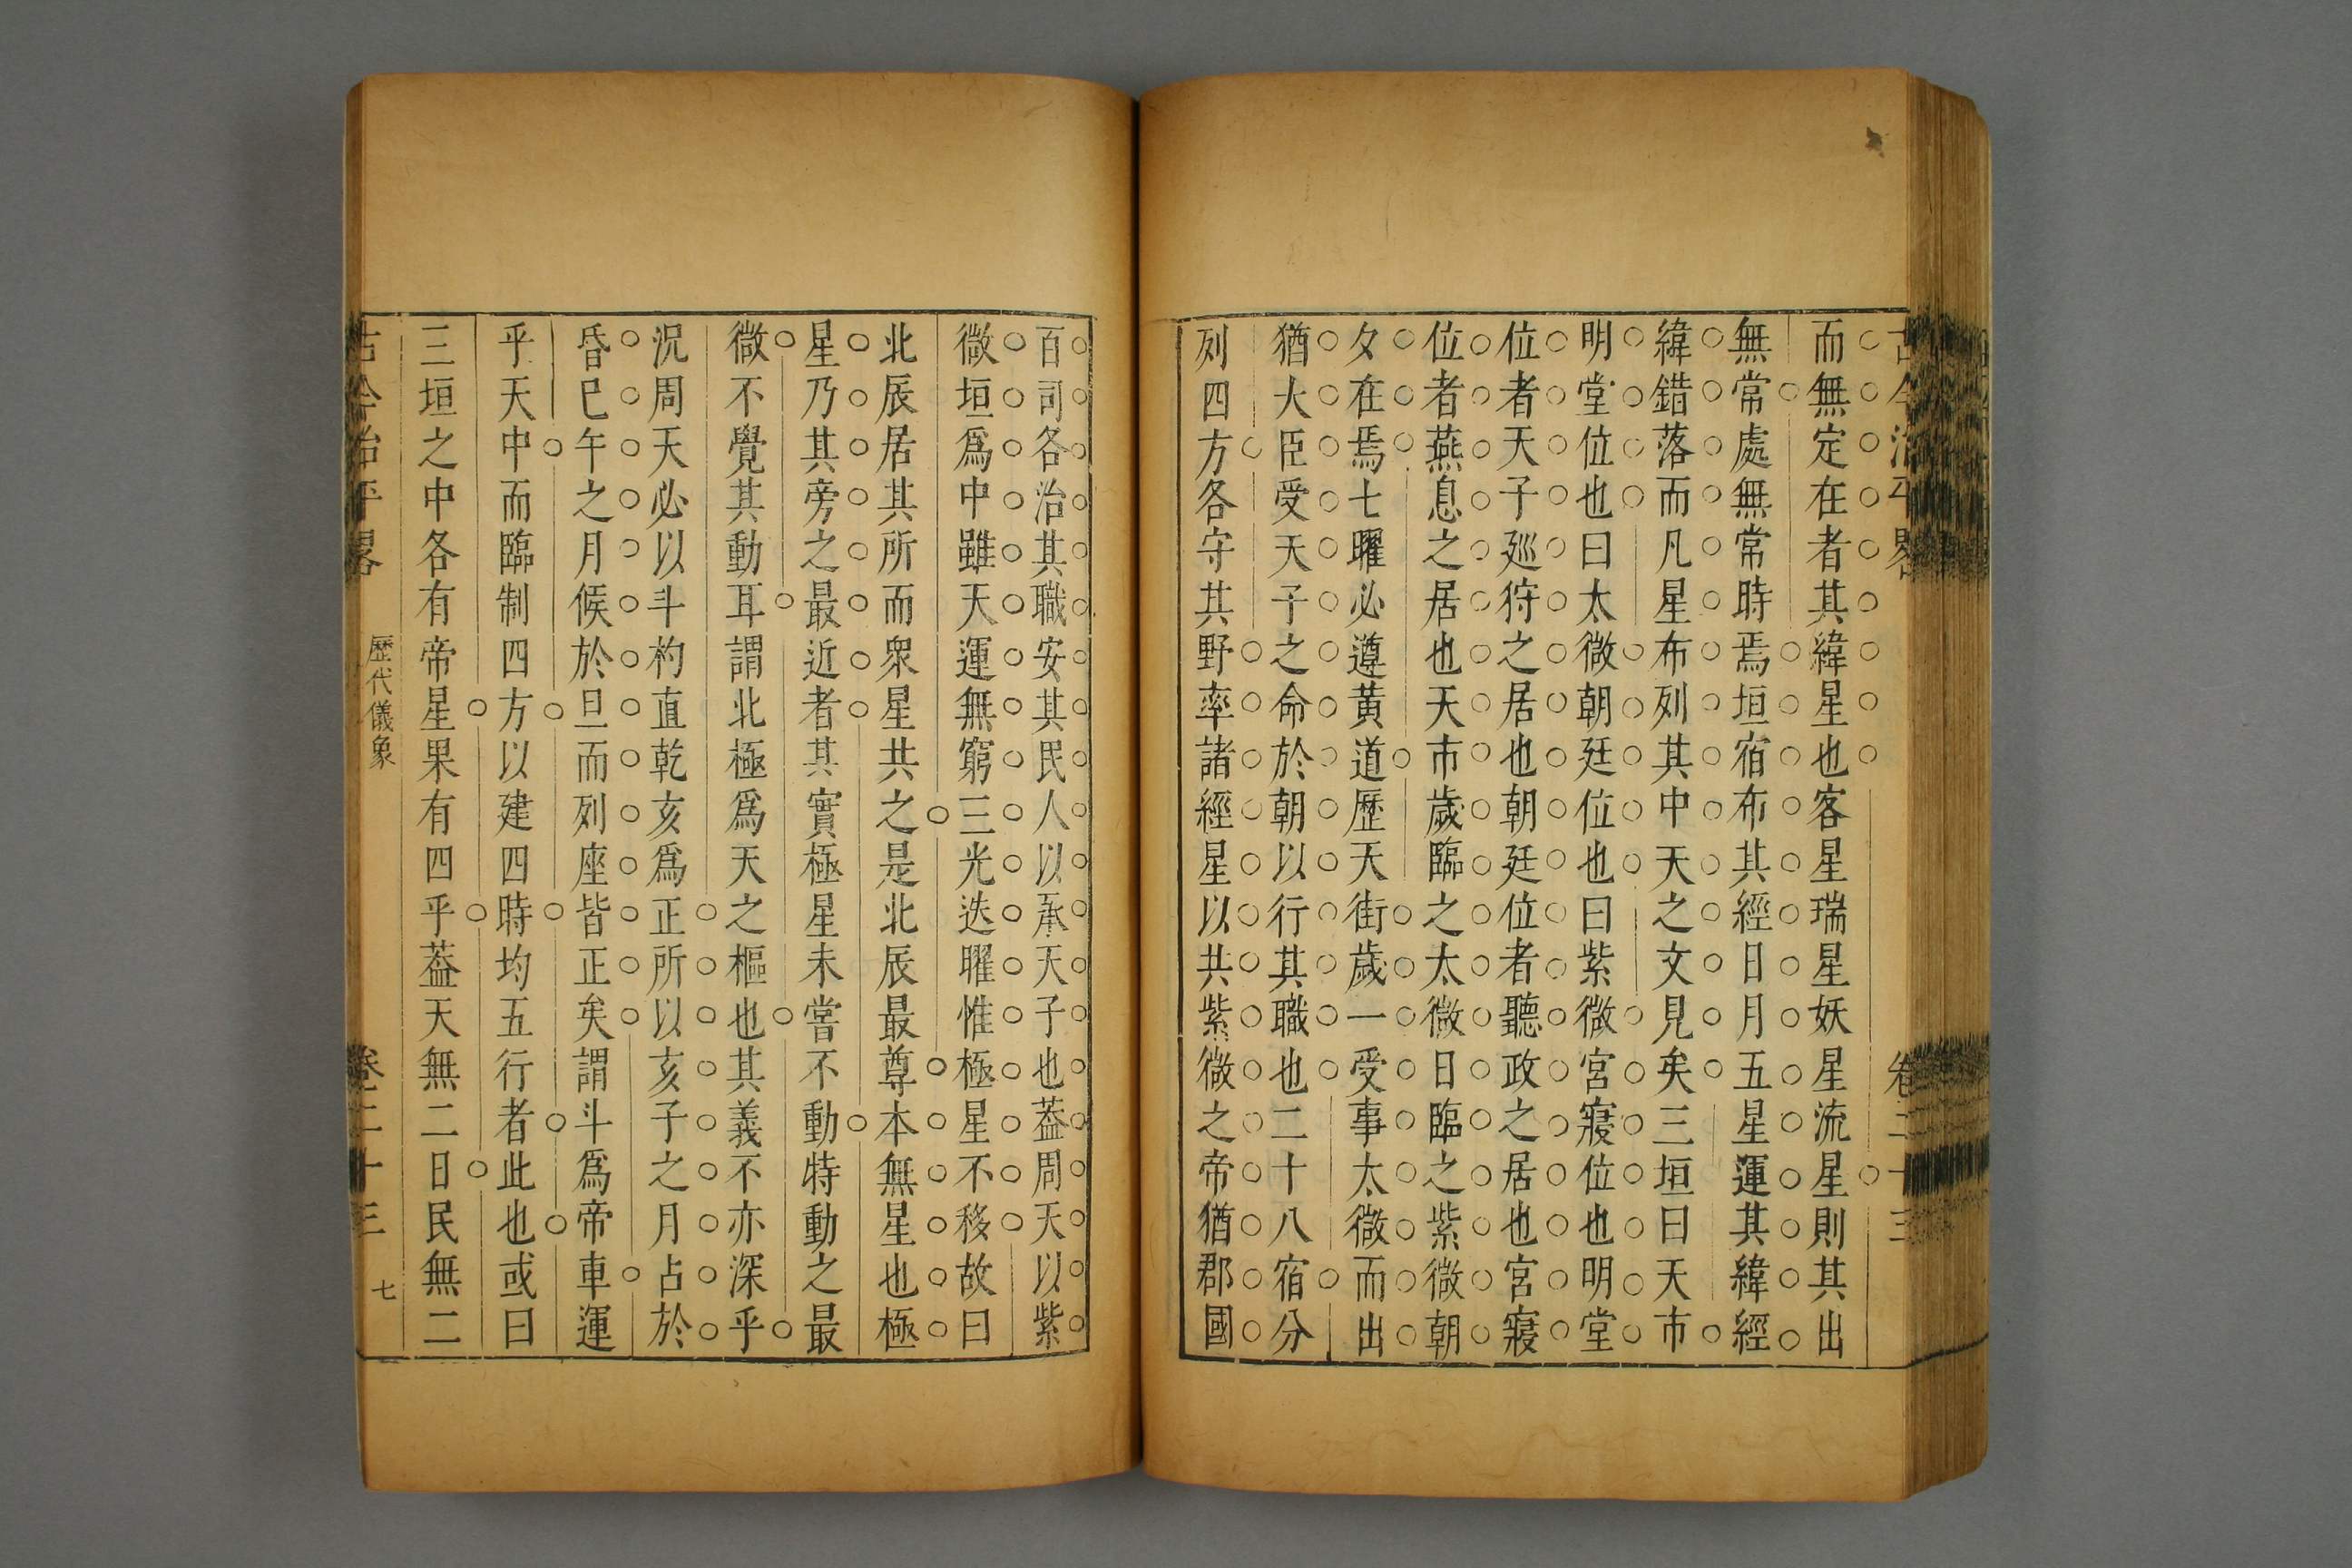 古今治平畧 卷二十三
而無定在者其緯星也客星瑞星妖星流星則其出
無常處無常時焉垣宿布其經日月五星運其緯經
緯錯落而凡星布列其中天之文見矣三垣曰天市
明堂位也曰太微朝廷位也曰紫微宮寢位也明堂
位者天子廵狩之居也朝廷位者聽政之居也宮寢
位者燕息之居也天市歲臨之太微日臨之紫微朝
夕在焉七曜必遵黃道歷天街歲一受事太微而出
猶大臣受天子之命於朝以行其職也二十八宿分
列四方各守其野率諸經星以共紫微之帝猶郡國
百司各治其職安其民人以承天子也葢周天以紫
微垣爲中雖天運無窮三光迭曜惟極星不移故曰
北辰居其所而衆星共之是北辰最尊本無星也極
星乃其旁之最近者其實極星未嘗不動特動之最
微不覺其動耳謂北極爲天之樞也其義不亦深乎
況周天必以斗杓直乾亥爲正所以亥子之月占於
昏巳午之月候於旦而列座皆正矣謂斗爲帝車運
乎天中而臨制四方以建四時均五行者此也或曰
三垣之中各有帝星果有四乎葢天無二日民無二
古今治平畧 歷代儀象 卷二十三 七